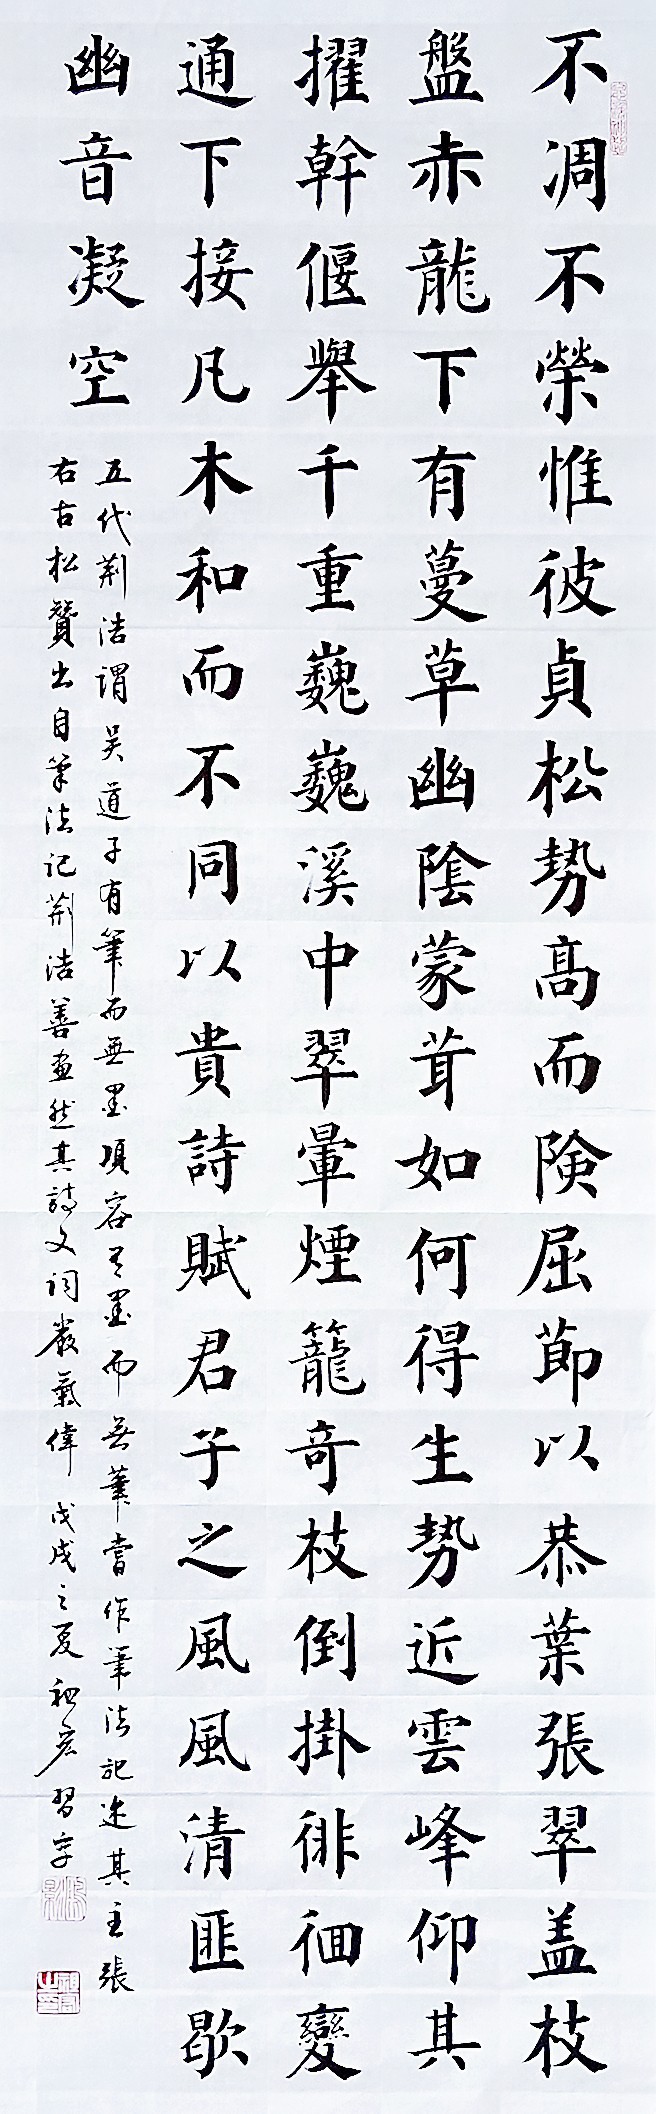 不凋不榮惟彼貞松勢高而険屈節以恭葉張翠盖枝
盤赤龍下有蔓草幽陰蒙茸如何得生勢近雲峰仰其
擢幹偃舉千重巍巍溪中翠暈煙籠奇枝倒掛徘徊變
通下接凡木和而不同以貴詩賦君子之風風清匪歇
幽音凝空
五代荆浩謂吴道子有筆而無墨項容有墨而無筆嘗作筆法記述其主張
右古松贊出自筆法記荆浩善畫然其詩文詞嚴氣偉戊戌之夏習字